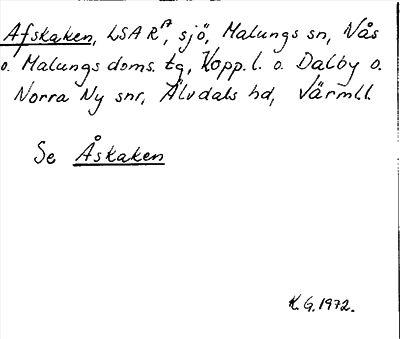 Afskaken, LSA R17, sjö, Malungs sn, Nås
o. Malungs doms. tg, Kopp. l. o. Dalby o.
Norra Ny snr, Älvdals hd, Värmll.
Se Åskaken
K.G. 1972.